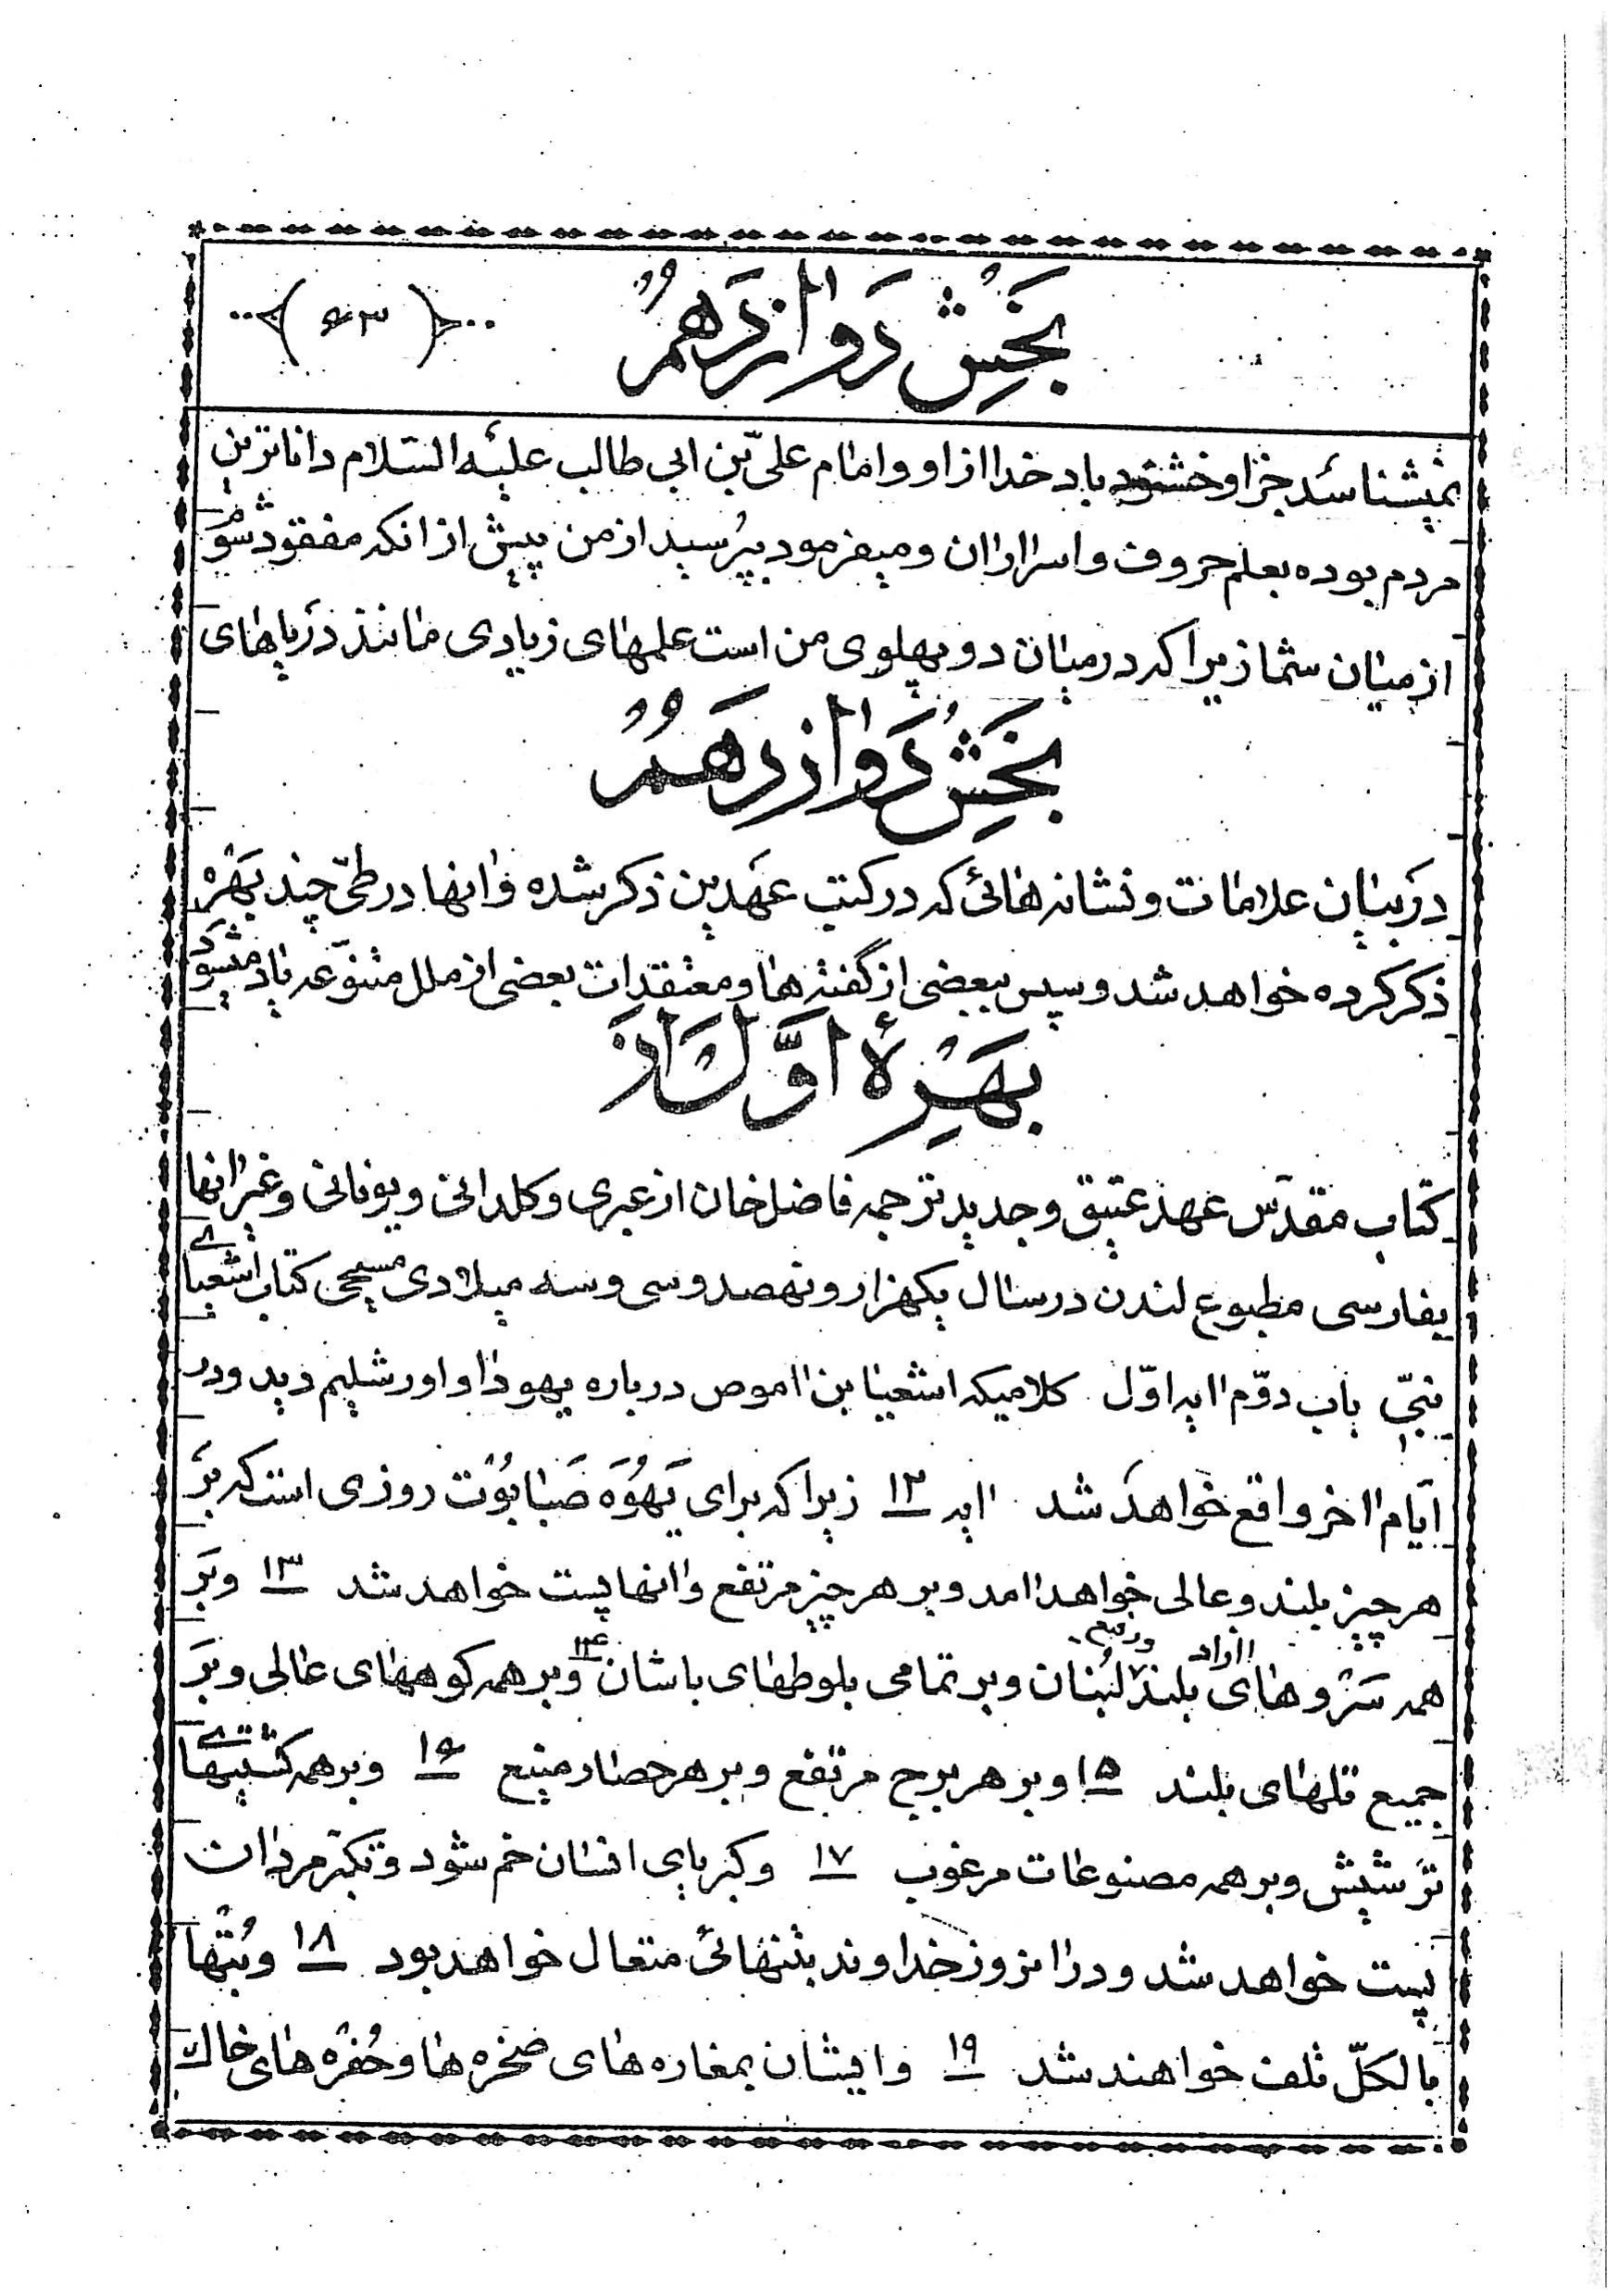 بخش دوازدهم ﴿ ۶۳ ﴾
نمیشناسد جز او خشنود باد خدا از او و امام علیّ بن ابی طالب علیه السّلام داناترین
مردم بوده بعلم حروف و اسرار ان و میفرمود بپرسید از من پیش از انکه مفقود شوم
از میان شما زیرا که در میان دو پهلوی من است علمهای زیادی مانند دریاهای
بخش دوازدهم
در بیان علامات و نشانه هائی که در کتب عهدین ذکر شده و انها در طیّ چند بهره
ذکر کرده خواهد شد و سپس ببعضی از گفته ها و معتقدات بعضی از ملل متنوّعه یاد میشود
بهرهٔ اوّل از
کتاب مقدّس عهد عتیق و جدید ترجمه فاضل خان از عبری و کلدانی و یونانی و غیر انها
بفارسی مطبوع لندن در سال یکهزار و نهصد و سی و سه میلادی مسیحی کتاب اشعیای
نبیّ باب دوّم اایه اوّل کلامیکه اشعیا بن اموص درباره یهودا و اورشلیم دید و در
ایّام ااخر واقع خواهد شد اایه ۱۲ زیرا که برای یَهُوَه صَبایُوت روزی است که بر
هر چیز بلند و عالی خواهد اامد و بر هر چیز مرتفع و اانها پست خواهد شد ۱۳ و بر
همه سروهای اازاد بلند و رفیع لبنان و بر تمامی بلوطهای باشان ۱۴ و بر همه کوههای عالی و بر
جمیع تلهای بلند ۱۵ و بر هر برج مرتفع و بر هر حصار منیع ۱۶ و بر همه کشتیهای
ترشیش و بر همه مصنوعات مرغوب ۱۷ و کبریای انسان خم شود و تکبّر مردان
پست خواهد شد و در انروز خداوند بتنهائی متعال خواهد بود ۱۸ و بتها
بالکلّ تلف خواهند شد ۱۹ و ایشان بمغاره های صخره ها و حفره های خاک